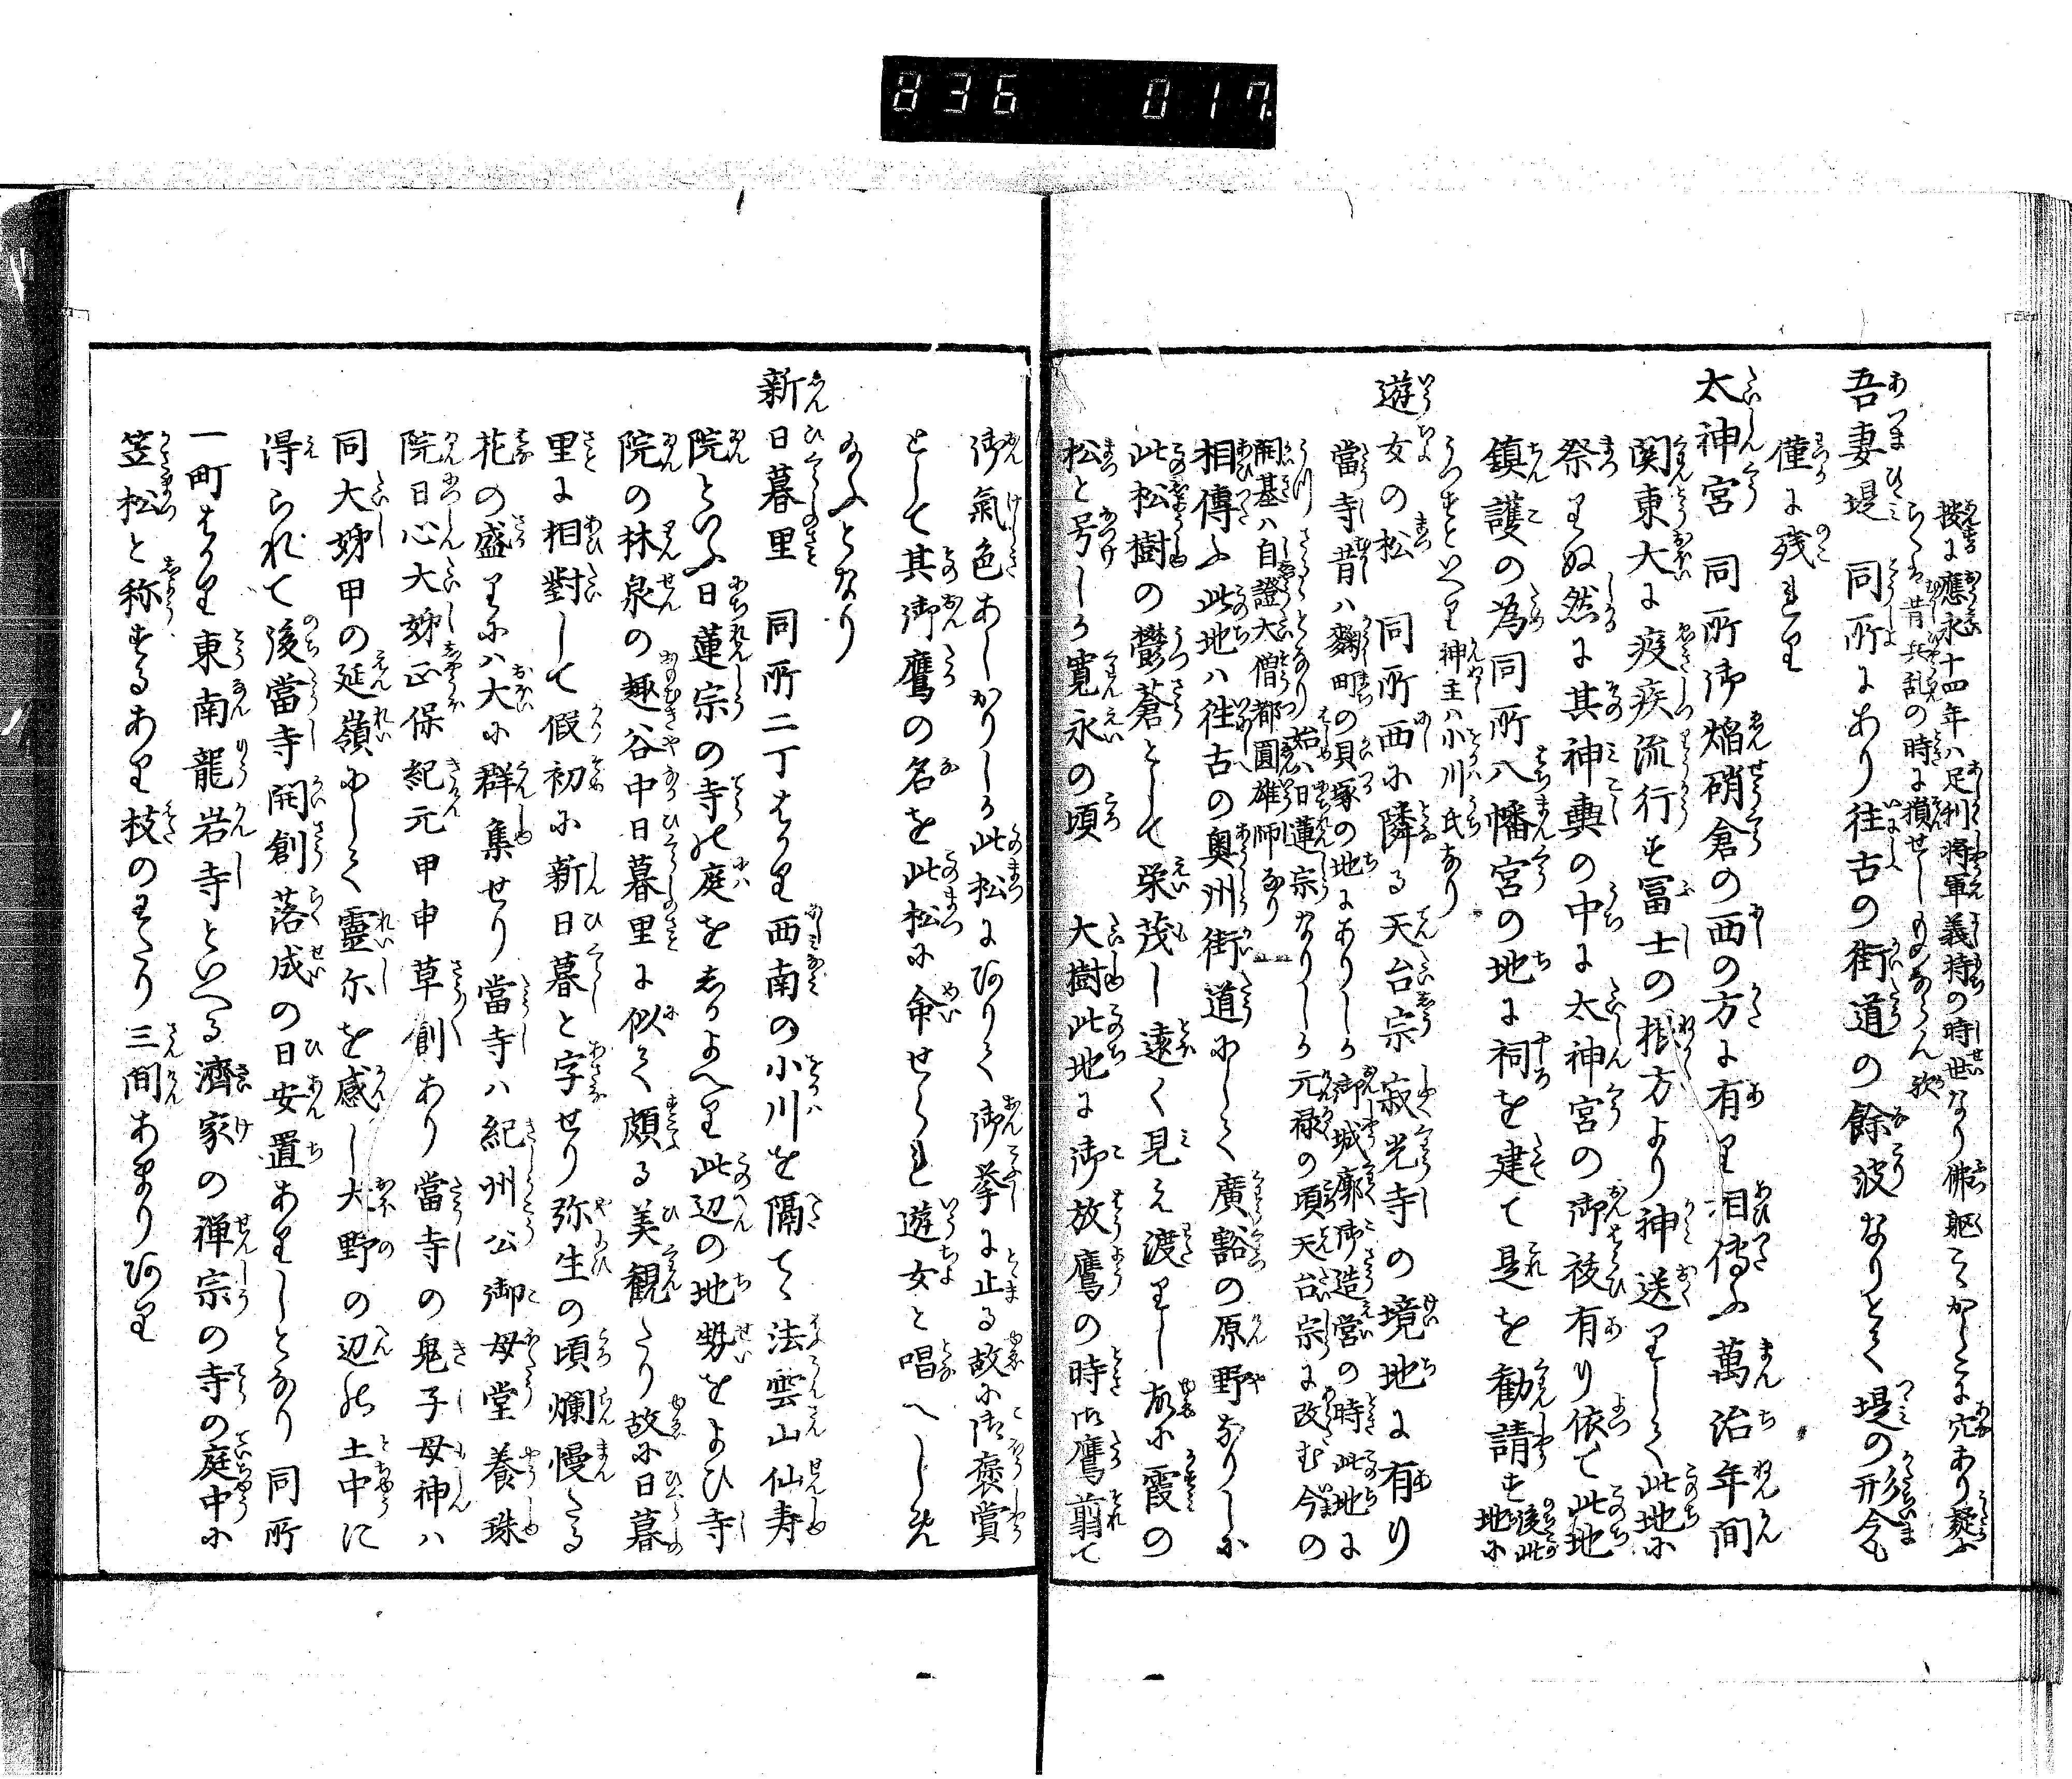 836 017
按に應永十四年ハ足利将軍義持の時世なり佛躯こゝかしこに穴あり疑ふ
らくは昔兵乱の時に損せしものならん歟
吾妻堤 同所にあり往古の街道の餘波なりとて堤の形今も
僅に残れり
太神宮 同所御焔硝倉の西の方に有り相傳ふ萬治年間
関東大に疫疾流行す冨士の根方より神送りして此地に
祭りぬ然に其神輿の中に太神宮の御祓有り依て此地
鎮護の為同所八幡宮の地に祠を建て是を勧請す後此地に
うつすといへり神主ハ小川氏なり
遊女の松 同所西に隣る天台宗寂光寺の境地に有り
當寺昔ハ麹町の貝塚の地にありしか御城廓御造営の時此地に
うつさるゝとなり始ハ日蓮宗なりしか元禄の頃天台宗に改む今の
開基ハ自證大僧都圓雄師なり
相傳ふ此地ハ往古の奥州街道にして廣豁の原野なりしに
此松樹の鬱蒼として栄茂し遠く見え渡りし故に霞の
松と号しか寛永の頃 大樹此地に御放鷹の時御鷹翦て
御氣色あしかりしか此松にありて御拳に止る故に御褒賞
として其御鷹の名を此松に命せられ遊女と唱へしめ
給ふとなり
新日暮里 同所二丁はかり西南の小川を隔てゝ法雲山仙寿
院といふ日蓮宗の寺の庭をしかよへり此辺の地勢をよひ寺
院の林泉の趣谷中日暮里に似て頗る美観たり故に日暮
里に相對して假初に新日暮と字せり弥生の頃爛慢たる
花の盛りにハ大に群集せり當寺ハ紀州公御母堂養珠
院日心大姉正保紀元甲申草創あり當寺の鬼子母神ハ
同大姉甲の延嶺にして靈尓を感し大野の辺の土中に
得られて後當寺開創落成の日安置ありしとなり 同所
一町はかり東南龍岩寺といへる濟家の禅宗の寺の庭中に
笠松と称するあり枝のわたり三間あまりあり